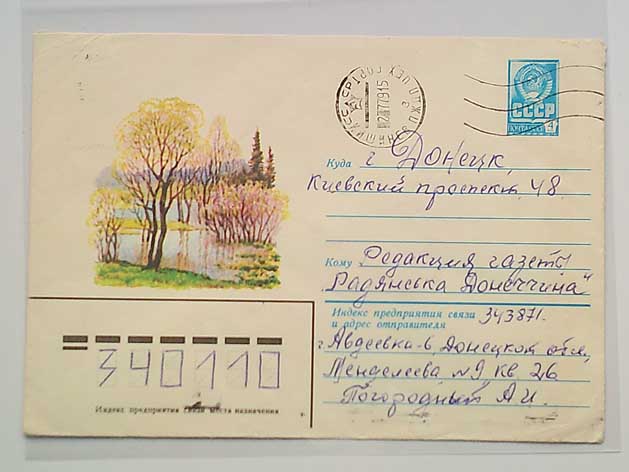 СССР
ПОЧТА 4
Куда г. Донецк,
Киевский проспект, 48.
Кому Редакция газеты
"Радянська Донеччина"
Индекс предприятия связи 343871.
и адрес отправителя
г. Авдеевка-6 Донецкой обл.,
Менделеева, №9, кв. 26
Погородный А.И.
340110
Индекс предприятия связи места назначения